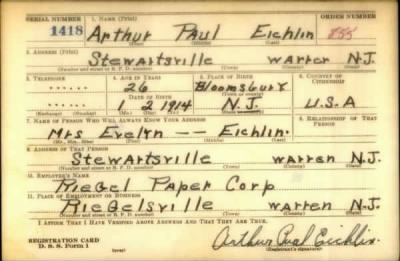 SERIAL NUMBER 1. NAME (Print) ORDER NUMBER
1418 Arthur Paul Eichlin 855
(First) (Middle) (Last)
2. ADDRESS (Print)
Stewartsville Warren N.J.
(Number and street or R. F. D. number) (Town) (County) (State)
3. TELEPHONE 4. AGE IN YEARS 5. PLACE OF BIRTH 6. COUNTRY OF CITIZENSHIP
26 Bloomsbury
(Town or county)
DATE OF BIRTH
1 2 1914 N.J. U.S.A
(Exchange) (Number) (Mo.) (Day) (Yr.) (State or country)
7. NAME OF PERSON WHO WILL ALWAYS KNOW YOUR ADDRESS 8. RELATIONSHIP OF THAT PERSON
Mrs Evelyn -- Eichlin.
(Mr., Mrs., Miss) (First) (Middle) (Last)
9. ADDRESS OF THAT PERSON
Stewartsville Warren N.J.
(Number and street or R. F. D. number) (Town) (County) (State)
10. EMPLOYER'S NAME
Riegel Paper Corp
11. PLACE OF EMPLOYMENT OR BUSINESS
Riegelsville Warren N.J.
(Number and street or R. F. D. number) (Town) (County) (State)
I AFFIRM THAT I HAVE VERIFIED ABOVE ANSWERS AND THAT THEY ARE TRUE.
REGISTRATION CARD
D. S. S. Form 1 (over) Arthur Paul Eichlin
(Registrant's signature)